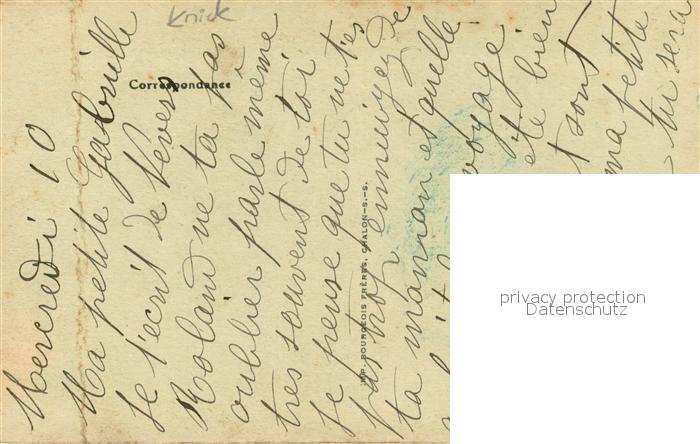 Knick
Correspondance
IMP. BOURGEOIS FRÈRES, CHALON-S.-S.
Mercredi 10
Ma petite Gabrielle
Je t'ecrit de Nevers
Roland ne ta pas
oublier parle même
tres souvent de toi
Je pense que tu ne t'es
pas trop ennuyez de
ta maman et quelle
voyage
ete bien
t sont
ma petite
tu sera
privacy protection
Datenschutz